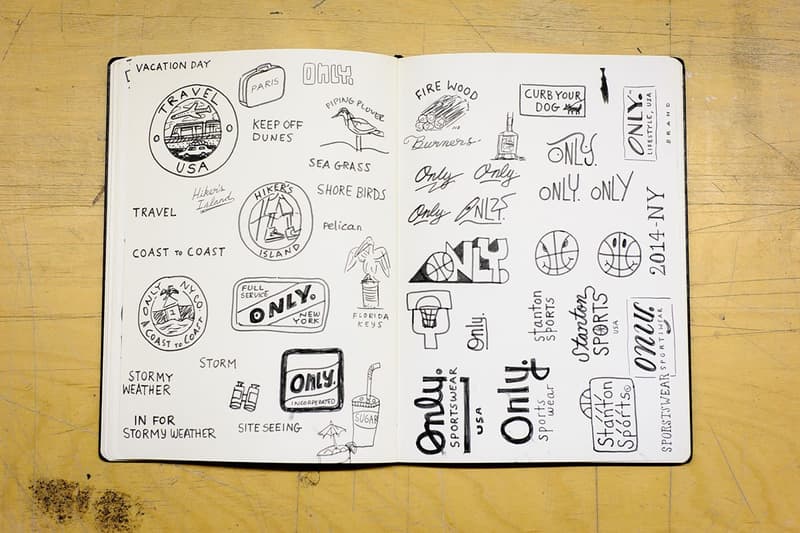 VACATION DAY
PARIS
ONLY.
TRAVEL
USA
KEEP OFF
DUNES
PIPING PLOVER
SEA GRASS
Hiker's
Island
HIKER'S
ISLAND
SHORE BIRDS
TRAVEL
pelican
COAST TO COAST
ONLY NY CO
A COAST to COAST
FULL
SERVICE
ONLY.
NEW
YORK
FLORIDA
KEYS
STORM
STORMY
WEATHER
ONLY.
INCORPORATED
SUGAR
IN FOR
STORMY WEATHER
SITE SEEING
FIRE WOOD
CURB YOUR
DOG
ONLY.
LIFESTYLE, USA
BRAND
Burners
ONLY.
Only
Only
ONLY.
ONLY
Only
ONLY.
2014-NY
ONLY.
Only.
Stanton
SPORTS
Stanton
SPORTS
USA
ONLY.
SPORTSWEAR
Only.
SPORTSWEAR
USA
Only.
sports
wear
Stanton
Sports
SPORSTSWEAR